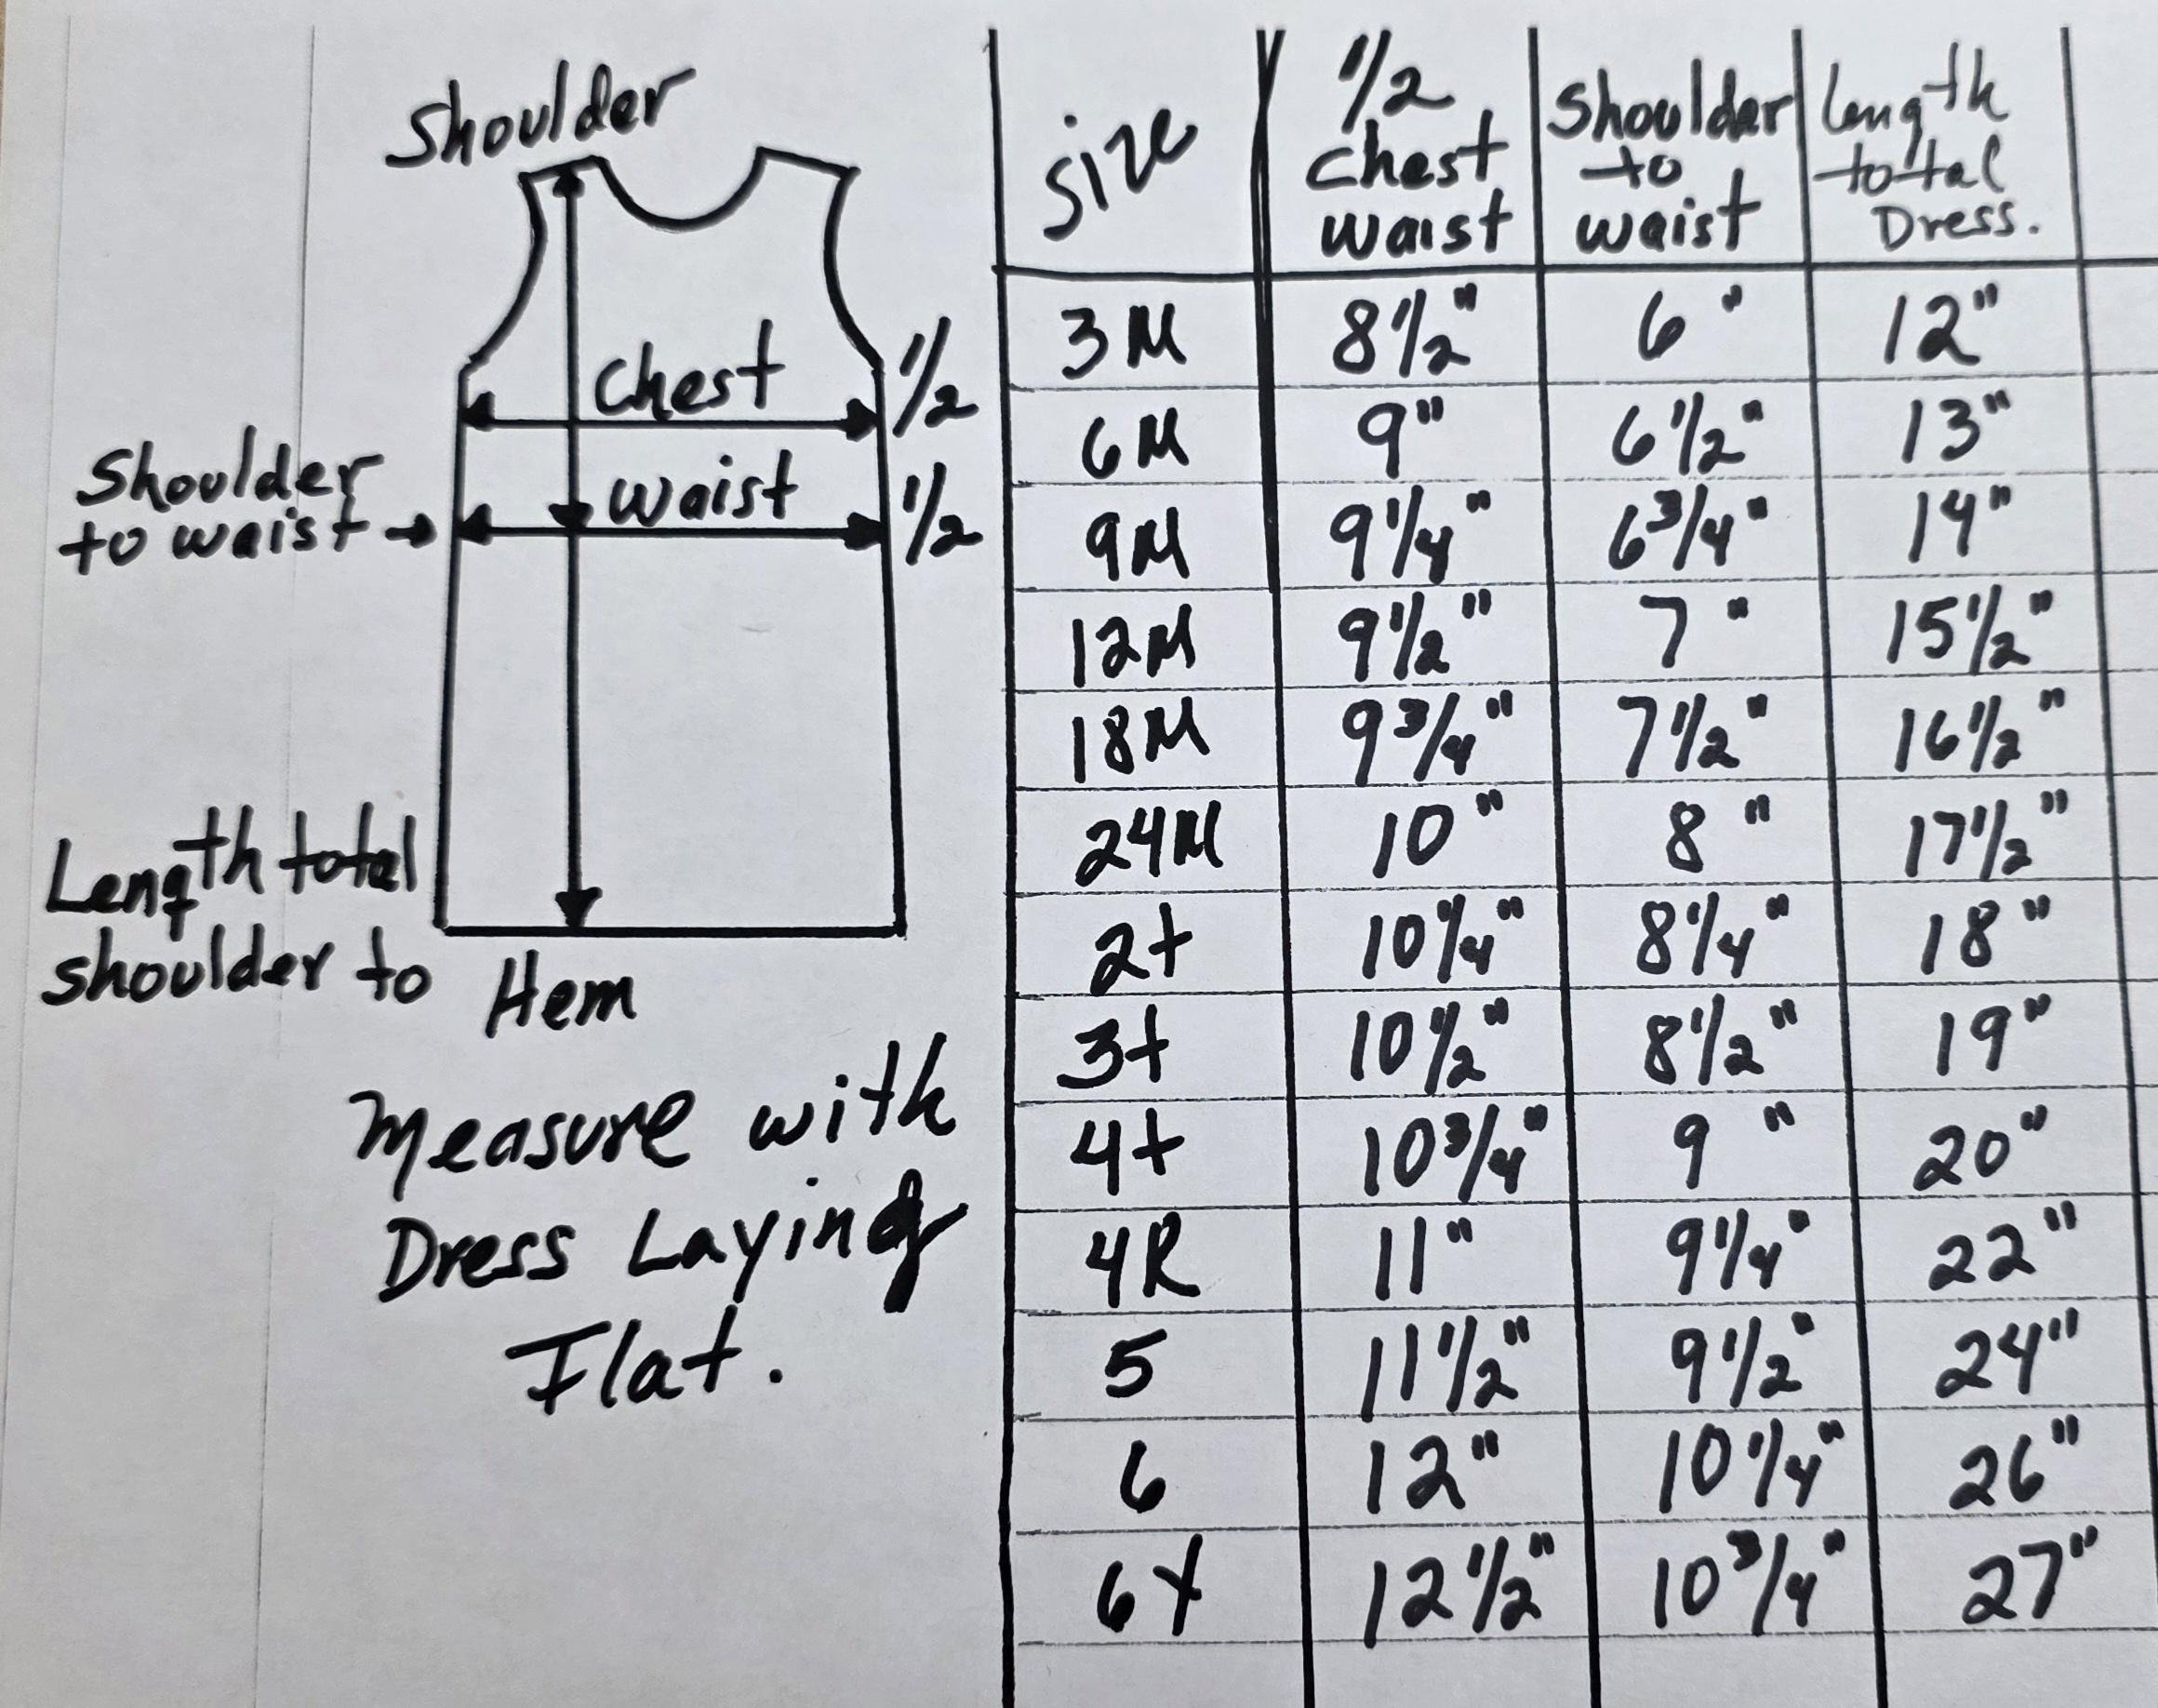 Shoulder
Chest 1/2
Shoulder
to waist →
waist 1/2
Length total
shoulder to Hem
Measure with
Dress Laying
Flat.
Size 1/2 Chest waist Shoulder to waist Length total Dress.
3M 8 1/2" 6" 12"
6M 9" 6 1/2" 13"
9M 9 1/4" 6 3/4" 14"
12M 9 1/2" 7" 15 1/2"
18M 9 3/4" 7 1/2" 16 1/2"
24M 10" 8" 17 1/2"
2t 10 1/4" 8 1/4" 18"
3t 10 1/2" 8 1/2" 19"
4t 10 3/4" 9" 20"
4R 11" 9 1/4" 22"
5 11 1/2" 9 1/2" 24"
6 12" 10 1/4" 26"
6X 12 1/2" 10 3/4" 27"